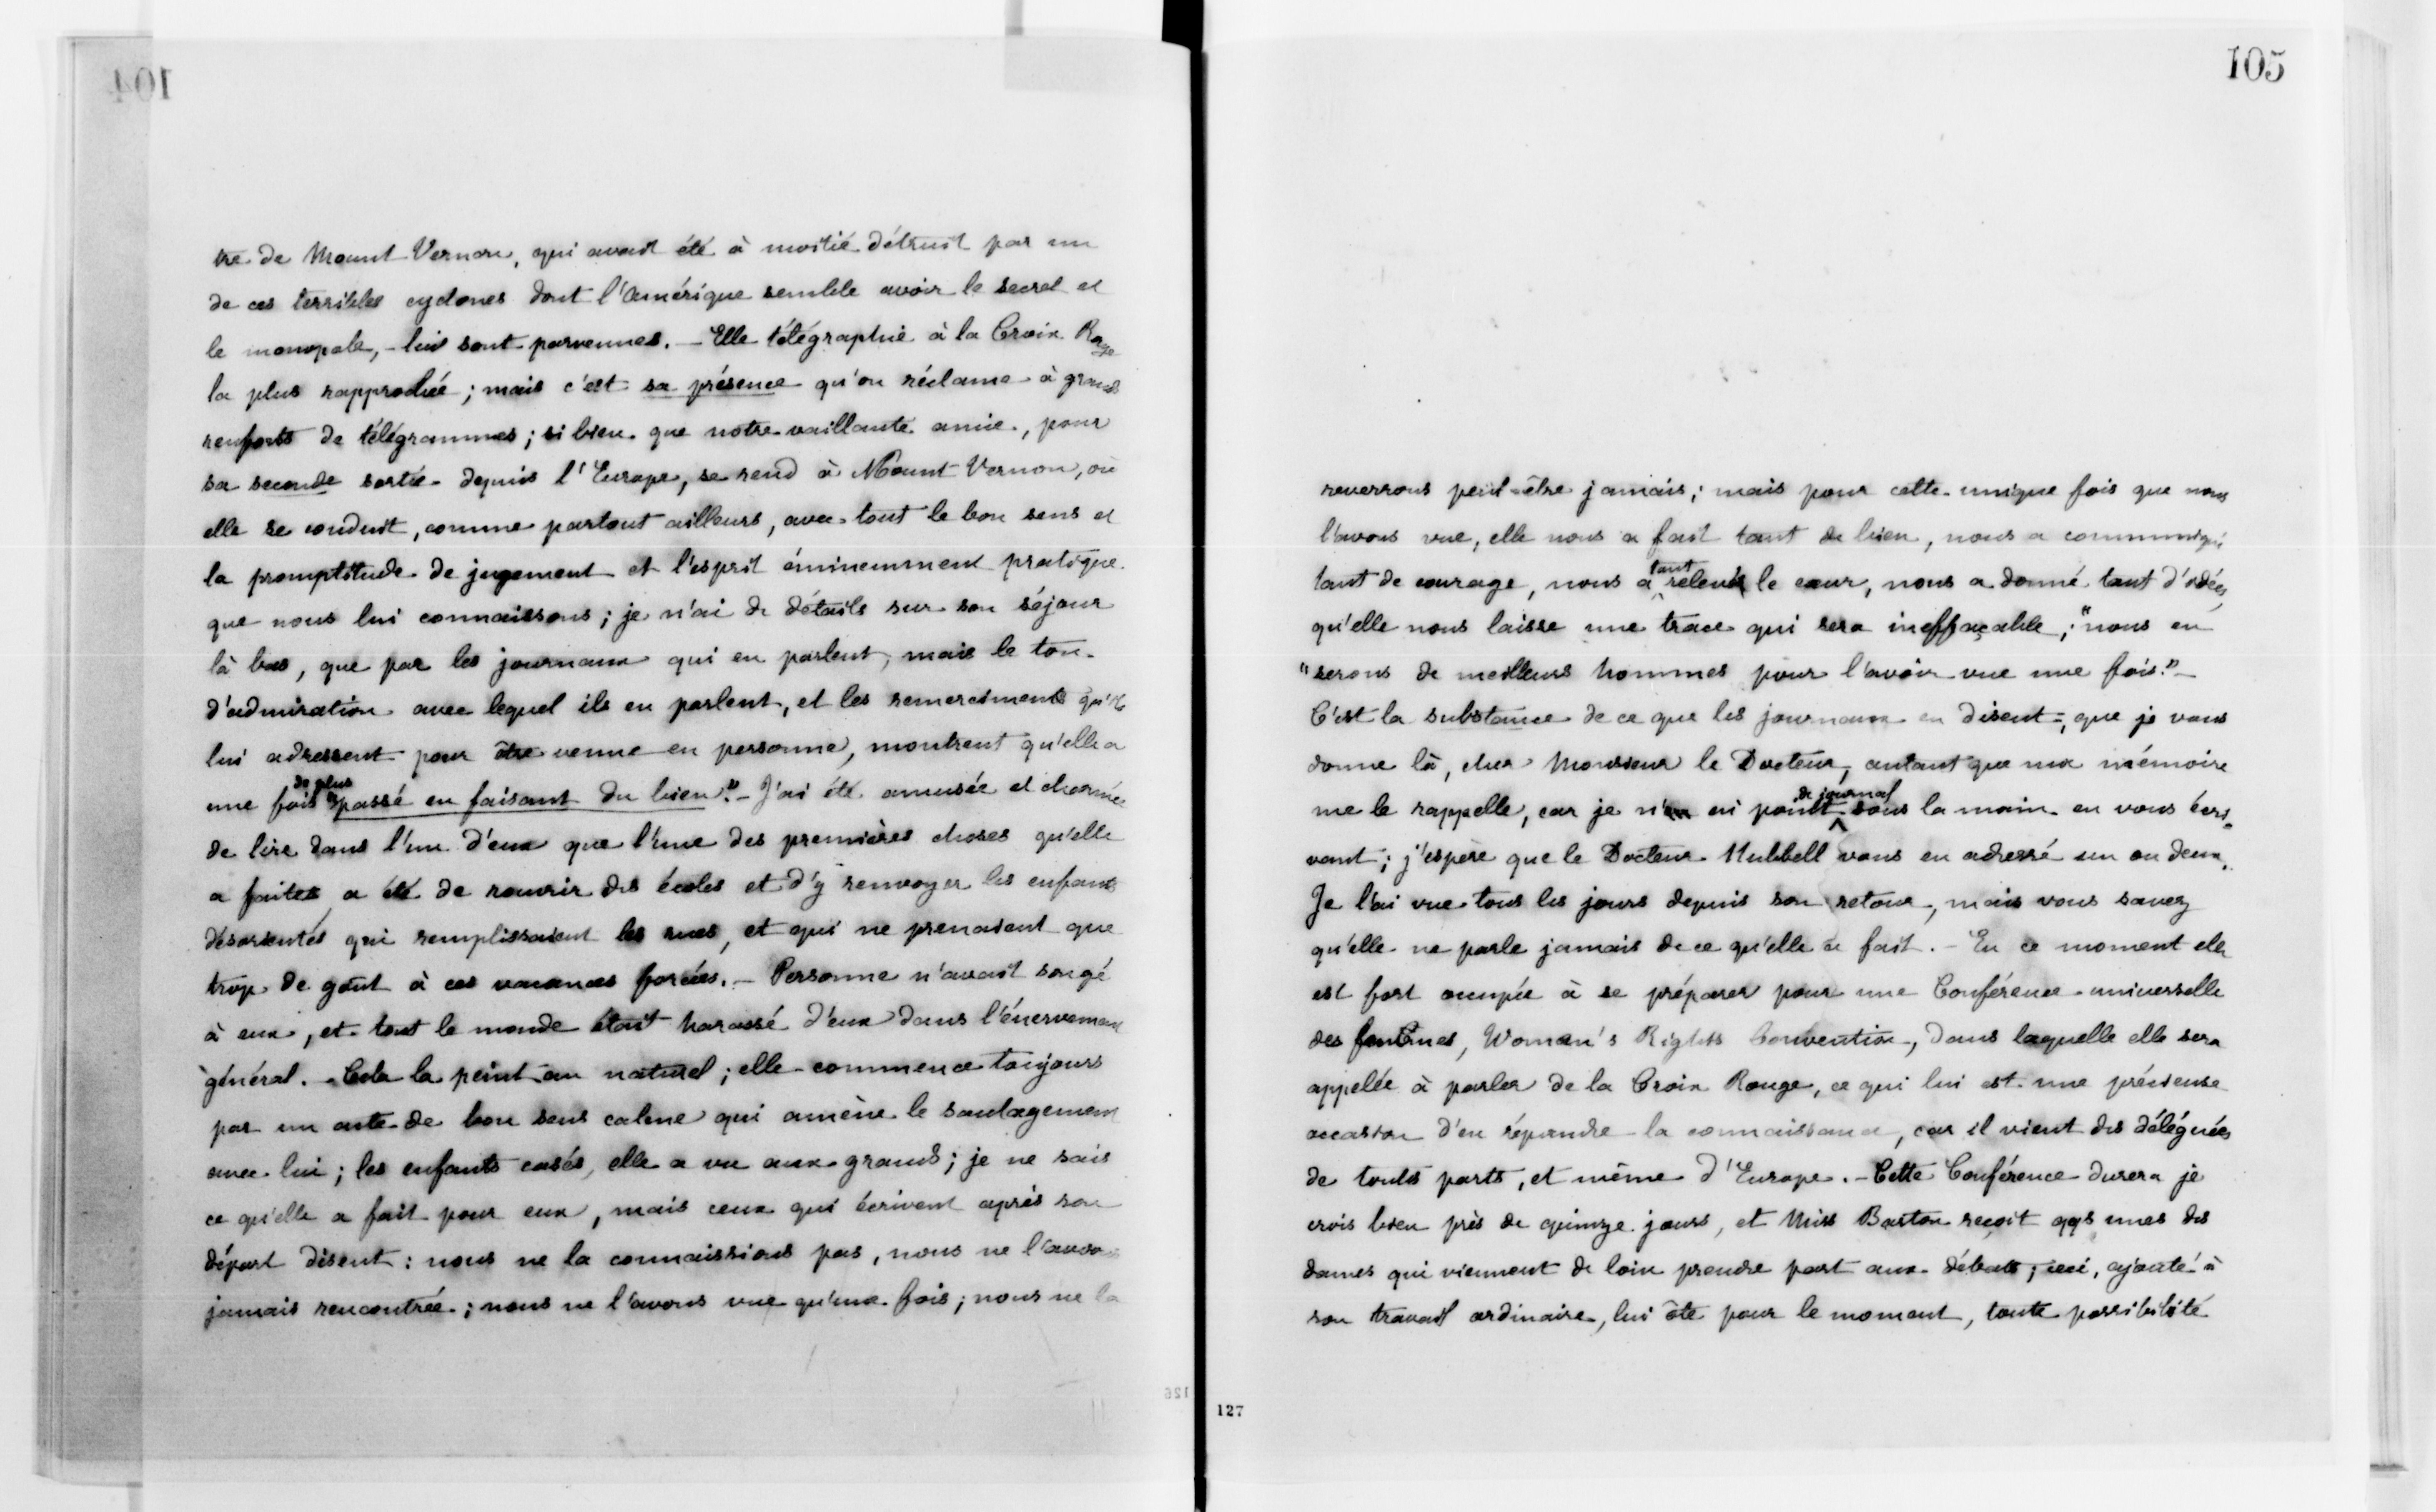 104
tre de Mount Vernon, qui avait été à moitié détruit par un
de ces terribles cyclones dont l'Amérique semble avoir le secret et
le monopole, - lui sont parvenues. - Elle télégraphie à la Croix Rouge
la plus rapprochée ; mais c'est sa présence qu'on réclame à grands
renforts de télégrammes ; si bien que notre vaillante amie, pour
sa seconde sortie depuis l'Europe, se rend à Mount Vernon, où
elle se conduit, comme partout ailleurs, avec tout le bon sens et
la promptitude de jugement et l'esprit éminemment pratique
que nous lui connaissons ; je n'ai de détails sur son séjour
là bas, que par les journaux qui en parlent, mais le ton
d'admiration avec lequel ils en parlent, et les remerciments qu'ils
lui adressent pour être venue en personne, montrent qu'elle a
de plus
une fois "passé en faisant du bien". - J'ai été amusée et charmée
de lire dans l'un d'eux que l'une des premières choses qu'elle
a faites a été de rouvrir des écoles et d'y renvoyer les enfants
désorientés qui remplissaient les rues, et qui ne prenaient que
trop de goût à ces vacances forcées. - Personne n'avait songé
à eux, et tout le monde était harassé d'eux dans l'énervement
général. - Cela la peint au naturel ; elle commence toujours
par un acte de bon sens calme qui amène le soulagement
avec lui ; les enfants casés, elle a vu aux grands ; je ne sais
ce qu'elle a fait pour eux, mais ceux qui écrivent après son
départ disent : nous ne la connaissions pas, nous ne l'avions
jamais rencontrée ; nous ne l'avons vue qu'une fois ; nous ne la
126
105
reverrons peut-être jamais ; mais pour cette unique fois que nous
l'avons vue, elle nous a fait tant de bien, nous a communiqué
tant
tant de courage, nous a relevé le cœur, nous a donné tant d'idées,
qu'elle nous laisse une trace qui sera ineffaçable ; "nous en
"serons de meilleurs hommes pour l'avoir vue une fois." -
C'est la substance de ce que les journaux en disent, que je vous
donne là, cher Monsieur le Docteur, autant que ma mémoire
de journal
me le rappelle, car je n'en ai point sous la main en vous écri-
vant ; j'espère que le Docteur Hubbell vous en adressé un ou deux.
Je l'ai vue tous les jours depuis son retour, mais vous savez
qu'elle ne parle jamais de ce qu'elle a fait. - En ce moment elle
est fort occupée à se préparer pour une Conférence universelle
des femmes, Woman's Rights Convention, dans laquelle elle sera
appelée à parler de la Croix Rouge, ce qui lui est une précieuse
occasion d'en répandre la connaissance, car il vient des déléguées
de toutes parts, et même d'Europe. - Cette Conférence durera je
crois bien près de quinze jours, et Miss Barton reçoit qqs unes des
dames qui viennent de loin prendre part aux débats ; ceci, ajouté à
son travail ordinaire, lui ôte pour le moment, toute possibilité
127